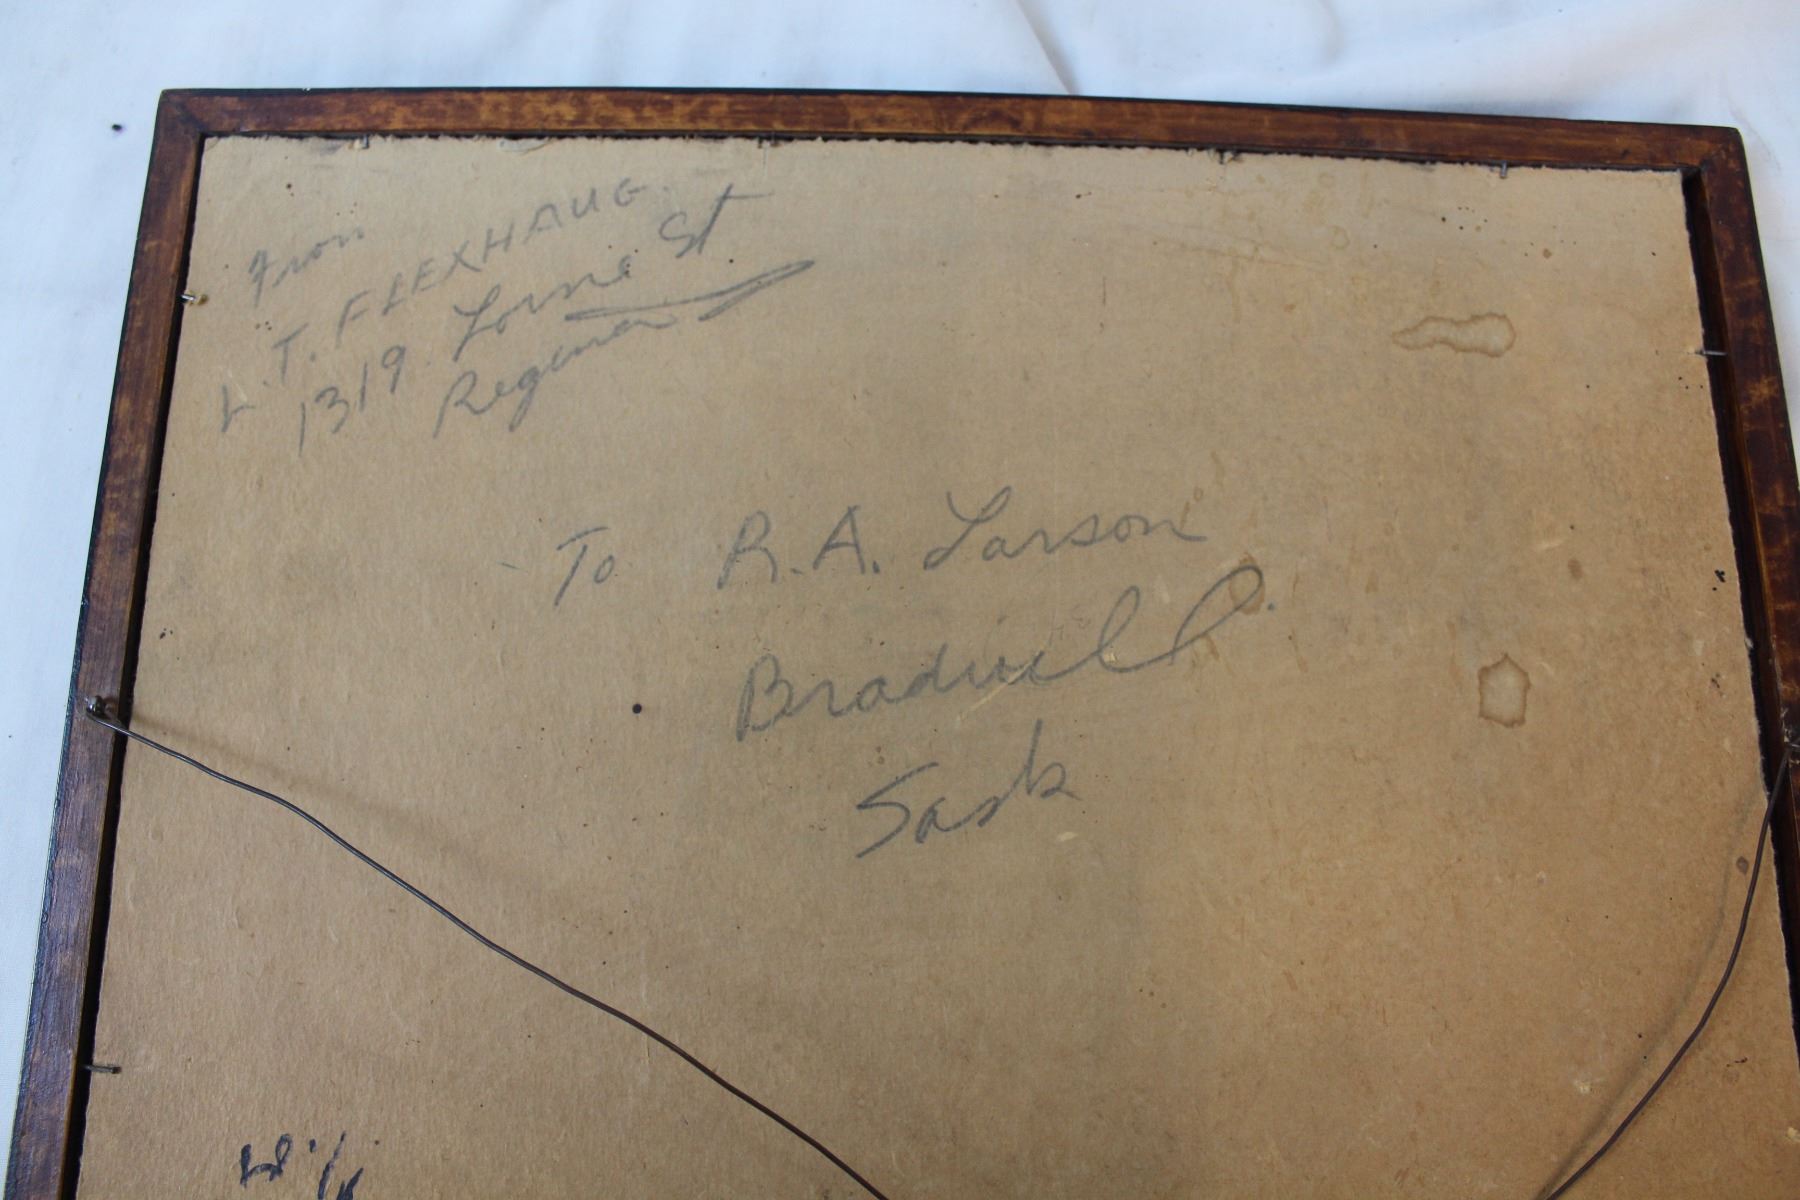 From
L. T. FLEXHAUG
1319 Lorne St
Regina
To R.A. Larson
Bradwell
Sask